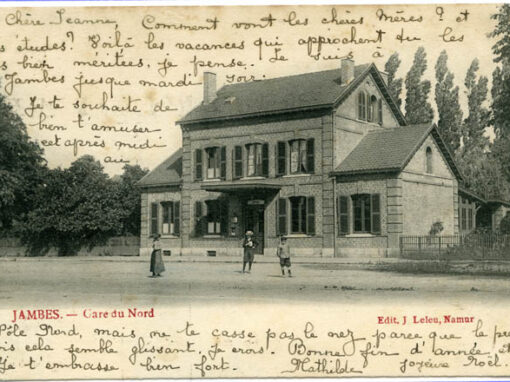 Chère Jeanne, Comment vont les chères Mères ? et
s études? Voilà les vacances qui approchent tu les
s bien méritées, je pense. Je suis à
Jambes jusque mardi soir.
Je te souhaite de
bien t'amuser
et après midi
au
JAMBES. — Gare du Nord
Edit. J. Leleu, Namur
Pôle Nord, mais ne te casse pas le nez parce que la pre
is cela semble glissant, je crois. Bonne fin d'année, et
Je t'embrasse bien fort. Mathilde Joyeux Noël.